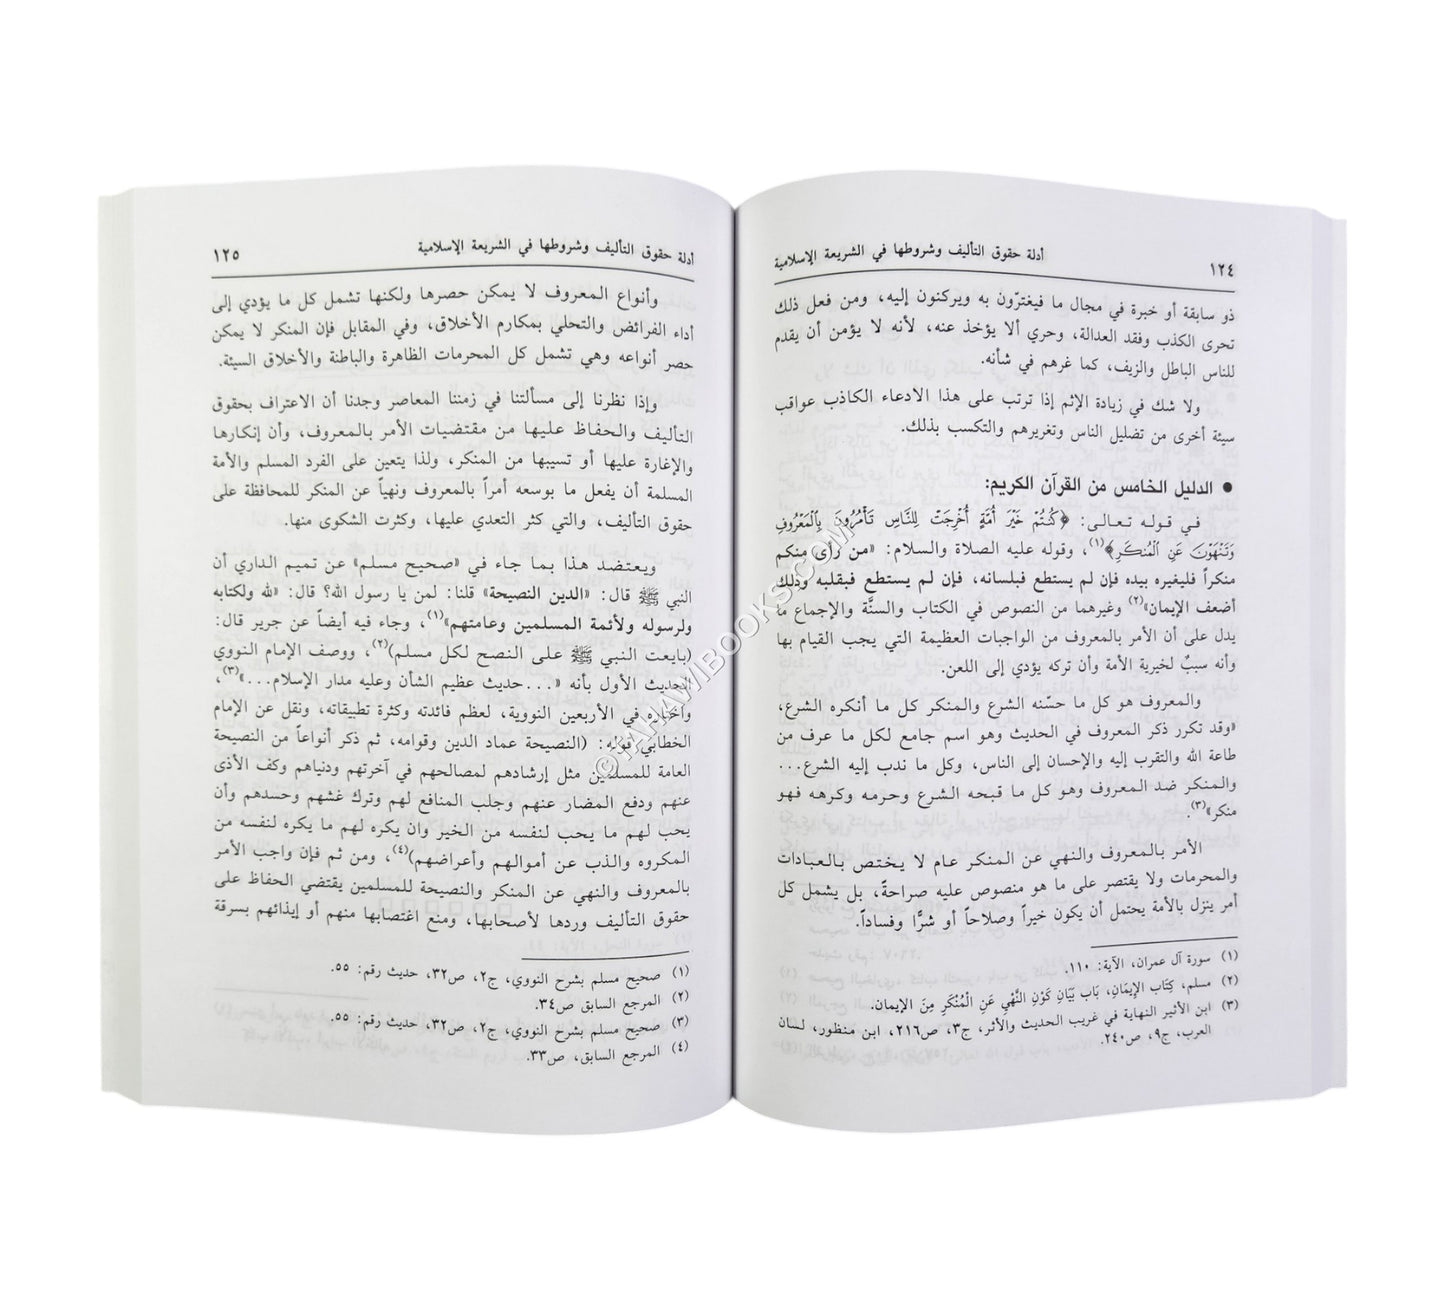 ١٢٤
أدلة حقوق التأليف وشروطها في الشريعة الإسلامية
ذو سابقة أو خبرة في مجال ما فيغترّون به ويركنون إليه، ومن فعل ذلك
تحرى الكذب وفقد العدالة، وحري ألا يؤخذ عنه، لأنه لا يؤمن أن يقدم
للناس الباطل والزيف، كما غرهم في شأنه.
ولا شك في زيادة الإثم إذا ترتب على هذا الادعاء الكاذب عواقب
سيئة أخرى من تضليل الناس وتغريرهم والتكسب بذلك.
● الدليل الخامس من القرآن الكريم:
في قوله تعالى: ﴿كُنتُمْ خَيْرَ أُمَّةٍ أُخْرِجَتْ لِلنَّاسِ تَأْمُرُونَ بِالْمَعْرُوفِ
وَتَنْهَوْنَ عَنِ الْمُنكَرِ﴾(١)، وقوله عليه الصلاة والسلام: «من رأى منكم
منكراً فليغيره بيده فإن لم يستطع فبلسانه، فإن لم يستطع فبقلبه وذلك
أضعف الإيمان»(٢) وغيرهما من النصوص في الكتاب والسنَّة والإجماع ما
يدل على أن الأمر بالمعروف من الواجبات العظيمة التي يجب القيام بها
وأنه سببٌ لخيرية الأمة وأن تركه يؤدي إلى اللعن.
والمعروف هو كل ما حسّنه الشرع والمنكر كل ما أنكره الشرع،
«وقد تكرر ذكر المعروف في الحديث وهو اسم جامع لكل ما عرف من
طاعة الله والتقرب إليه والإحسان إلى الناس، وكل ما ندب إليه الشرع...
والمنكر ضد المعروف وهو كل ما قبحه الشرع وحرمه وكرهه فهو
منكر»(٣).
الأمر بالمعروف والنهي عن المنكر عام لا يختص بالعبادات
والمحرمات ولا يقتصر على ما هو منصوص عليه صراحةً، بل يشمل كل
أمر ينزل بالأمة يحتمل أن يكون خيراً وصلاحاً أو شرًّا وفساداً.
(١) سورة آل عمران، الآية: ١١٠.
(٢) مسلم، كِتَاب الإِيمَانِ، بَاب بَيَانِ كَوْنِ النَّهْيِ عَنِ الْمُنْكَرِ مِنَ الإيمان.
(٣) ابن الأثير النهاية في غريب الحديث والأثر، ج٣، ص٢١٦، ابن منظور، لسان
العرب، ج٩، ص٢٤٠.
أدلة حقوق التأليف وشروطها في الشريعة الإسلامية
١٢٥
وأنواع المعروف لا يمكن حصرها ولكنها تشمل كل ما يؤدي إلى
أداء الفرائض والتحلي بمكارم الأخلاق، وفي المقابل فإن المنكر لا يمكن
حصر أنواعه وهي تشمل كل المحرمات الظاهرة والباطنة والأخلاق السيئة.
وإذا نظرنا إلى مسألتنا في زمننا المعاصر وجدنا أن الاعتراف بحقوق
التأليف والحفاظ عليها من مقتضيات الأمر بالمعروف، وأن إنكارها
والإغارة عليها أو تسيبها من المنكر، ولذا يتعين على الفرد المسلم والأمة
المسلمة أن يفعل ما بوسعه أمراً بالمعروف ونهياً عن المنكر للمحافظة على
حقوق التأليف، والتي كثر التعدي عليها، وكثرت الشكوى منها.
ويعتضد هذا بما جاء في «صحيح مسلم» عن تميم الداري أن
النبي ﷺ قال: «الدين النصيحة» قلنا: لمن يا رسول الله؟ قال: «لله ولكتابه
ولرسوله ولأئمة المسلمين وعامتهم»(١)، وجاء فيه أيضاً عن جرير قال:
(بايعت النبي ﷺ على النصح لكل مسلم)(٢)، ووصف الإمام النووي
الحديث الأول بأنه «...حديث عظيم الشأن وعليه مدار الإسلام...»(٣)،
واختاره في الأربعين النووية، لعظم فائدته وكثرة تطبيقاته، ونقل عن الإمام
الخطابي قوله: (النصيحة عماد الدين وقوامه، ثم ذكر أنواعاً من النصيحة
العامة للمسلمين مثل إرشادهم لمصالحهم في آخرتهم ودنياهم وكف الأذى
عنهم ودفع المضار عنهم وجلب المنافع لهم وترك غشهم وحسدهم وأن
يحب لهم ما يحب لنفسه من الخير وان يكره لهم ما يكره لنفسه من
المكروه والذب عن أموالهم وأعراضهم)(٤)، ومن ثم فإن واجب الأمر
بالمعروف والنهي عن المنكر والنصيحة للمسلمين يقتضي الحفاظ على
حقوق التأليف وردها لأصحابها، ومنع اغتصابها منهم أو إيذائهم بسرقة
(١) صحيح مسلم بشرح النووي، ج٢، ص٣٢، حديث رقم: ٥٥.
(٢) المرجع السابق ص٣٤.
(٣) صحيح مسلم بشرح النووي، ج٢، ص٣٢، حديث رقم: ٥٥.
(٤) المرجع السابق، ص٣٣.
©TAHAWIBOOKS.COM